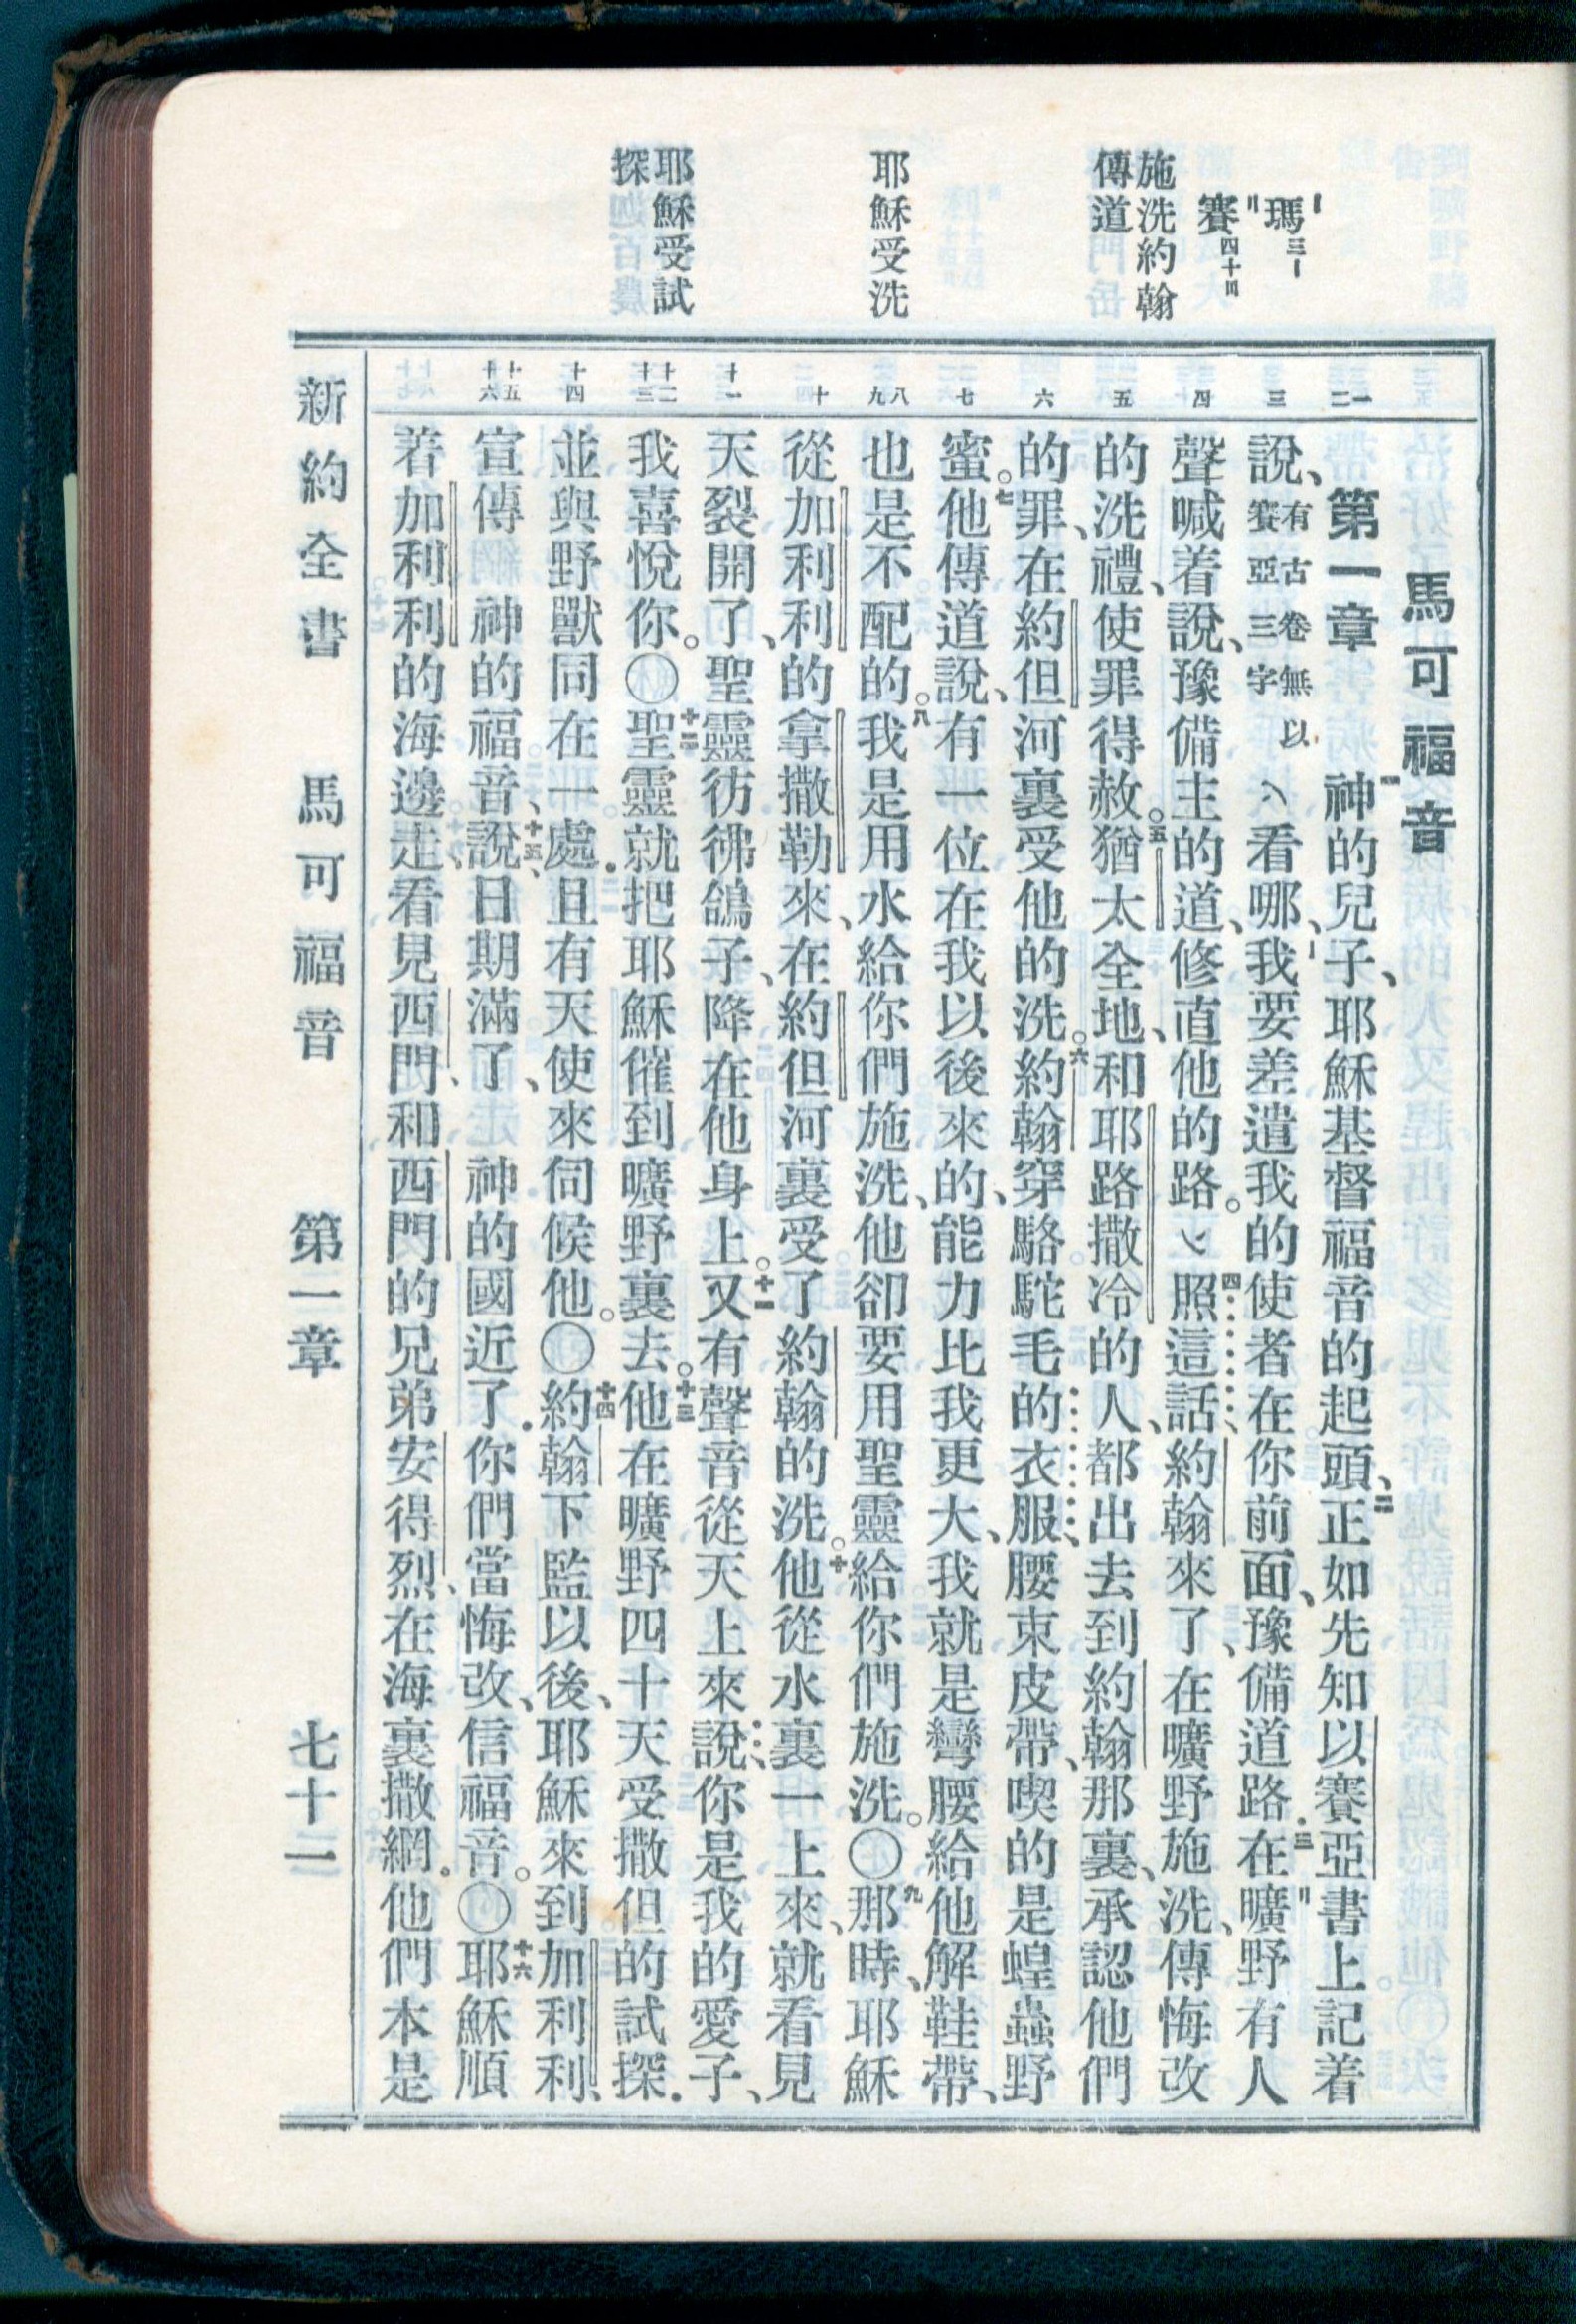 瑪三一
賽四十3
施洗約翰
傳道
耶穌受洗
耶穌受試
探
馬可福音
第一章 一神的兒子、耶穌基督福音的起頭、二正如先知以賽亞書上記着
說、有古卷無以賽亞三字〵看哪、我要差遣我的使者在你前面、豫備道路.三在曠野有人
聲喊着說、豫備主的道、修直他的路。〵四照這話、約翰來了、在曠野施洗、傳悔改
的洗禮、使罪得赦。五猶太全地、和耶路撒冷的人、都出去到約翰那裏、承認他們
的罪、在約但河裏受他的洗。六約翰穿駱駝毛的衣服、腰束皮帶、喫的是蝗蟲野
蜜。七他傳道說、有一位在我以後來的、能力比我更大、我就是彎腰給他解鞋帶、
也是不配的。八我是用水給你們施洗、他卻要用聖靈給你們施洗。〇九那時、耶穌
從加利利的拿撒勒來、在約但河裏受了約翰的洗。十他從水裏一上來、就看見
天裂開了、聖靈彷彿鴿子、降在他身上。十一又有聲音從天上來說、你是我的愛子、
我喜悅你。〇十二聖靈就把耶穌催到曠野裏去。十三他在曠野四十天受撒但的試探.
並與野獸同在一處.且有天使來伺候他。〇十四約翰下監以後、耶穌來到加利利、
宣傳 神的福音、十五說、日期滿了、神的國近了.你們當悔改、信福音。〇十六耶穌順
着加利利的海邊走、看見西門、和西門的兄弟安得烈、在海裏撒網.他們本是
新約全書 馬可福音 第一章 七十二